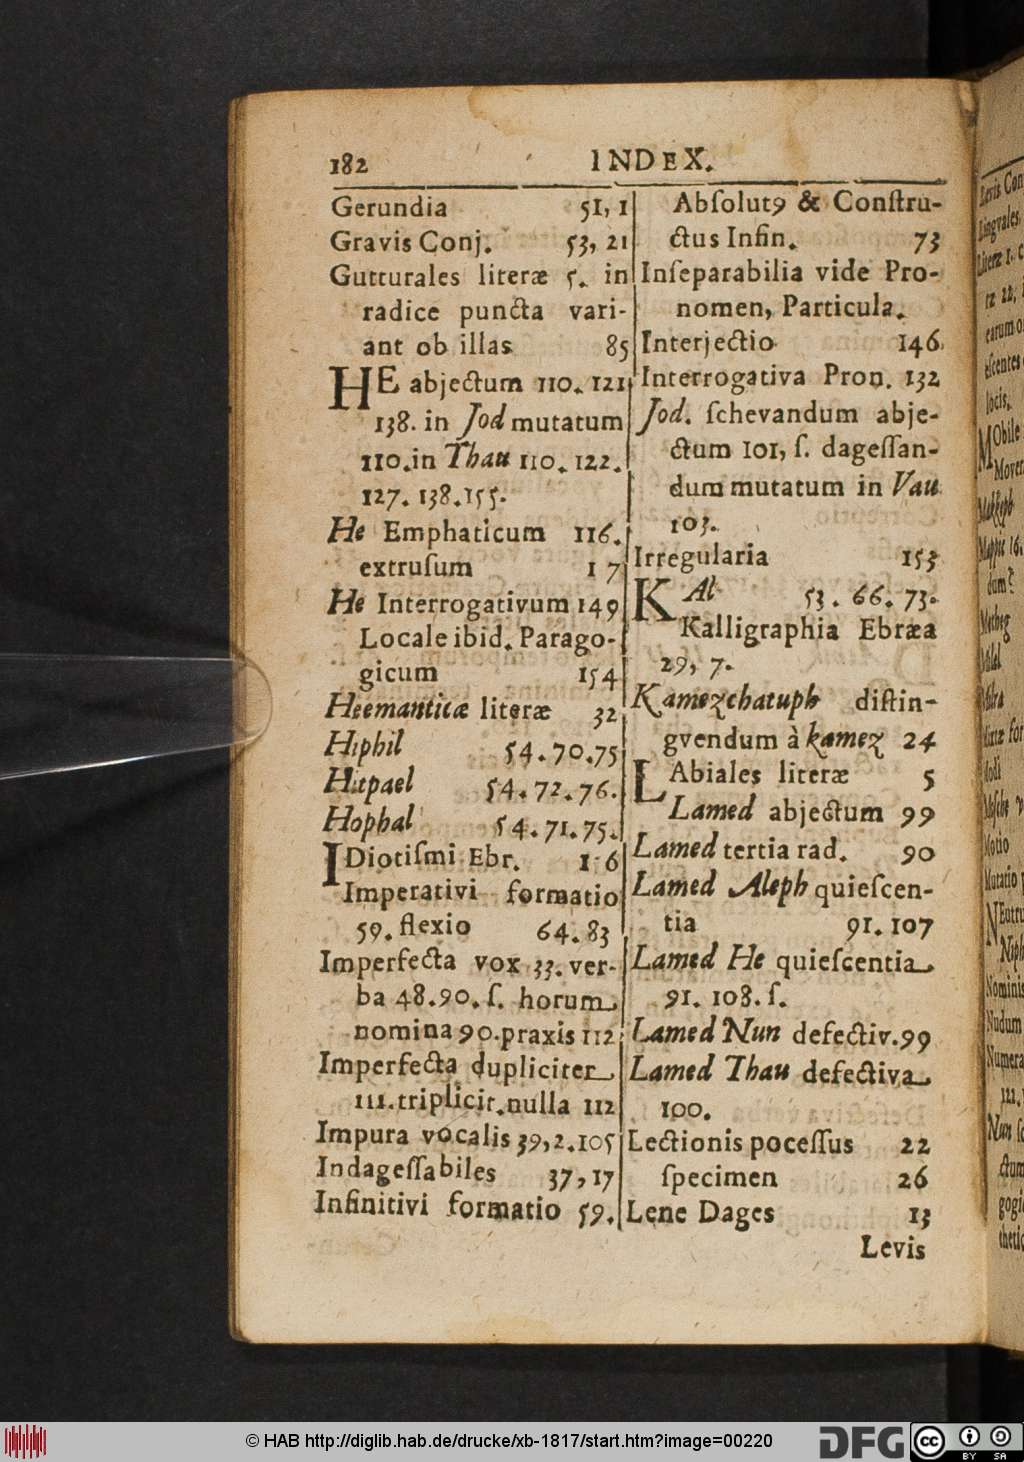 182 INDEX.
Gerundia 51, 1
Gravis Conj. 53, 21
Gutturales literæ 5. in
radice puncta vari-
ant ob illas 85
HE abjectum 110. 121
138. in Jod mutatum
110. in Thau 110. 122.
127. 138. 155.
He Emphaticum 116.
extruſum 1 7
He Interrogativum 149
Locale ibid. Parago-
gicum 154
Heemanticæ literæ 32
Hiphil 54. 70. 75
Hitpael 54. 72. 76.
Hophal 54. 71. 75.
IDiotiſmi Ebr. 1 6
Imperativi formatio
59. flexio 64. 83
Imperfecta vox 33. ver-
ba 48. 90. ſ. horum
nomina 90. praxis 112
Imperfecta dupliciter
111. triplicit. nulla 112
Impura vocalis 39, 2. 105
Indageſſabiles 37, 17
Infinitivi formatio 59.
Abſolutꝰ & Conſtru-
ctus Infin. 73
Inſeparabilia vide Pro-
nomen, Particula.
Interjectio 146
Interrogativa Pron. 132
Jod. ſchevandum abje-
ctum 101, ſ. dageſſan-
dum mutatum in Vau
103.
Irregularia 153
KAl 53. 66. 73.
Kalligraphia Ebræa
29, 7.
Kamezchatuph diſtin-
gvendum à kamez 24
LAbiales literæ 5
Lamed abjectum 99
Lamed tertia rad. 90
Lamed Aleph quieſcen-
tia 91. 107
Lamed He quieſcentia
91. 108. ſ.
Lamed Nun defectiv. 99
Lamed Thau defectiva
100.
Lectionis poceſſus 22
ſpecimen 26
Lene Dages 13
Levis
© HAB http://diglib.hab.de/drucke/xb-1817/start.htm?image=00220
DFG
cc BY SA